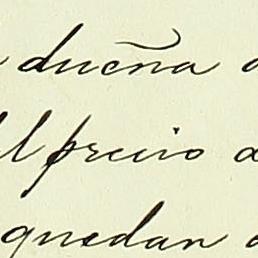 dueña
el precio
quedan